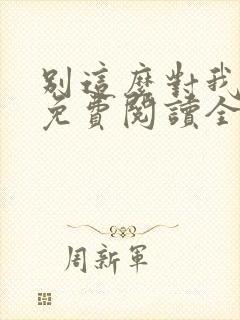 別這麼對我
免費閱讀全
周新軍